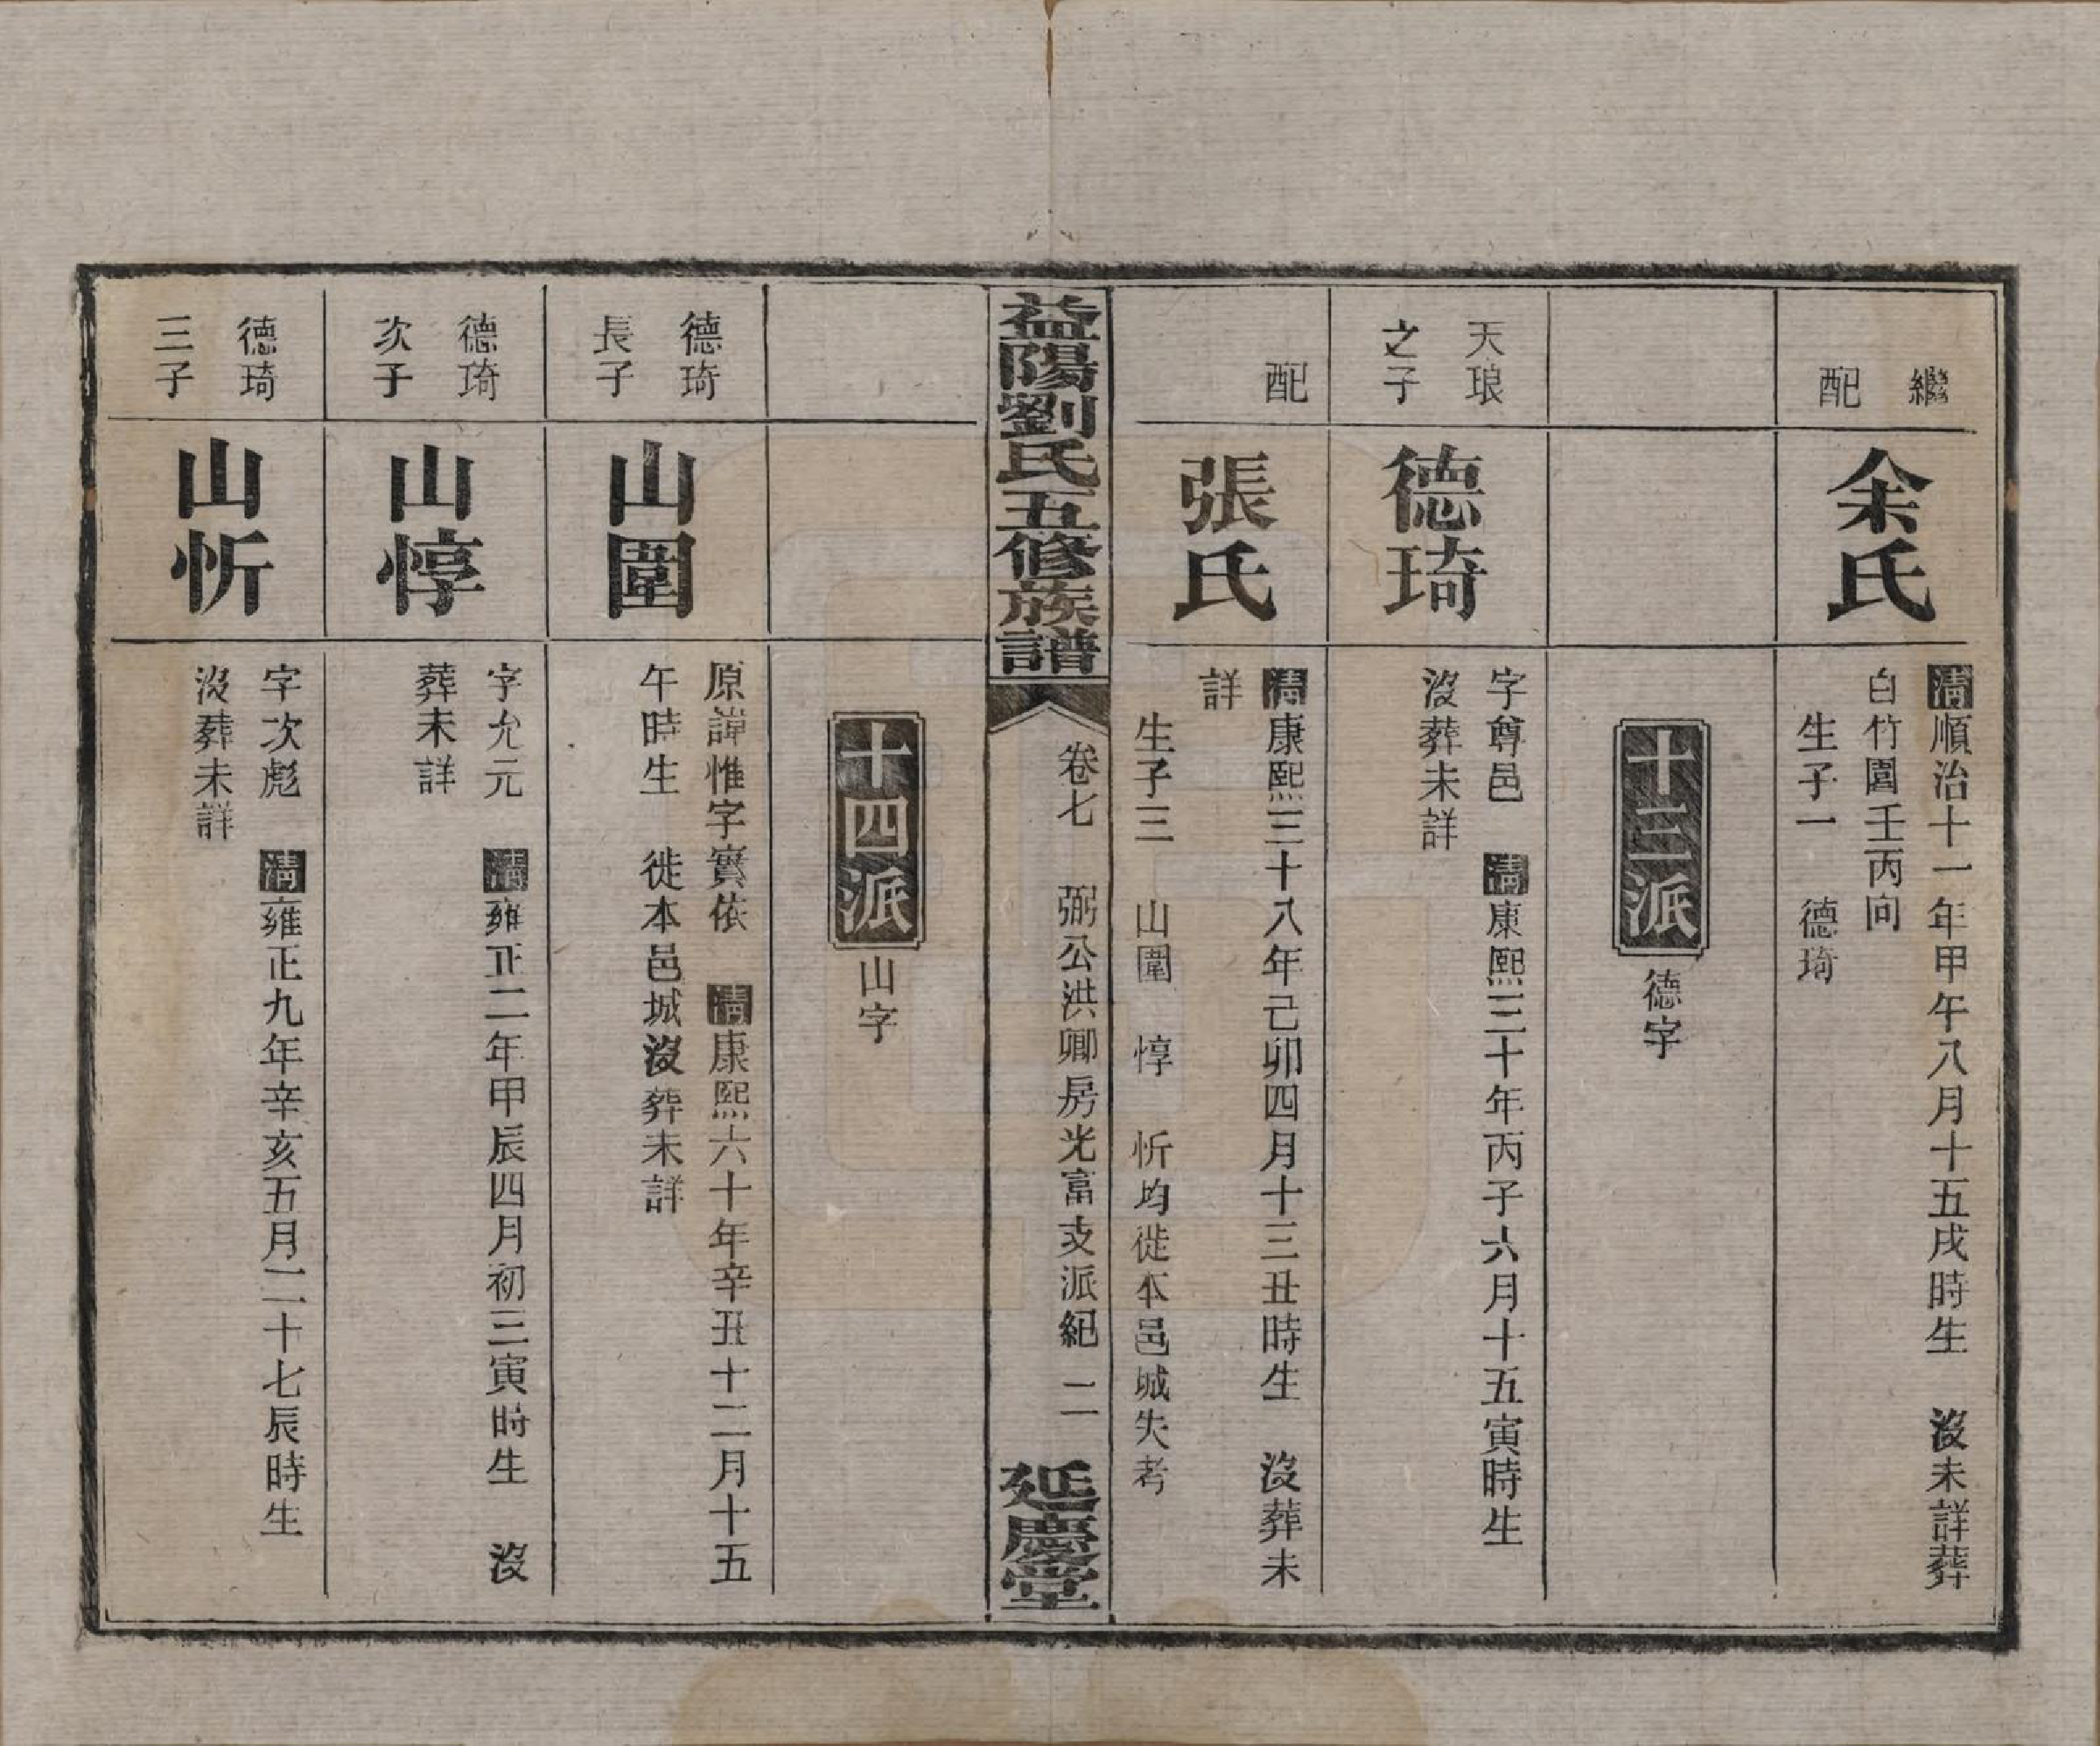 繼
配
余氏
清順治十一年甲午八月十五戌時生　沒未詳葬
白竹園壬丙向
生子一　德琦
十三派
德字
天琅
之子
德琦
字尊邑　清康熙三十年丙子六月十五寅時生
沒葬未詳
配
張氏
清康熙三十八年己卯四月十三丑時生　沒葬未
詳
生子三　山圍　惇　忻均徙本邑城失考
益陽劉氏五修族譜
卷七　弼公洪卿房光富支派紀　二
延慶堂
十四派
山字
德琦
長子
山圍
原諱惟字實依　清康熙六十年辛丑十二月十五
午時生　徙本邑城沒葬未詳
德琦
次子
山惇
字允元　清雍正二年甲辰四月初三寅時生　沒
葬未詳
德琦
三子
山忻
字次彪　清雍正九年辛亥五月二十七辰時生
沒葬未詳